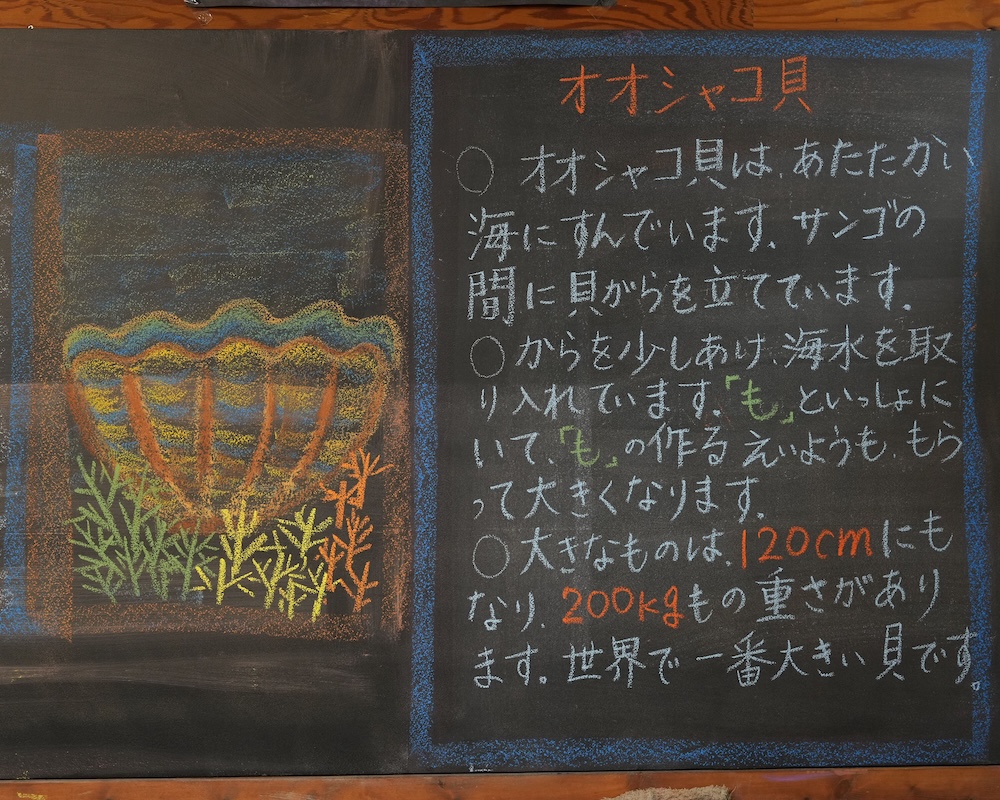 オオシャコ貝
○ オオシャコ貝は、あたたかい
海にすんでいます。サンゴの
間に貝がらを立てています。
○からを少しあけ、海水を取
り入れています。「も」といっしょに
いて、「も」の作るえいようも、もら
って大きくなります。
○大きなものは、120cmにも
なり、200kgもの重さがあり
ます。世界で一番大きい貝です。